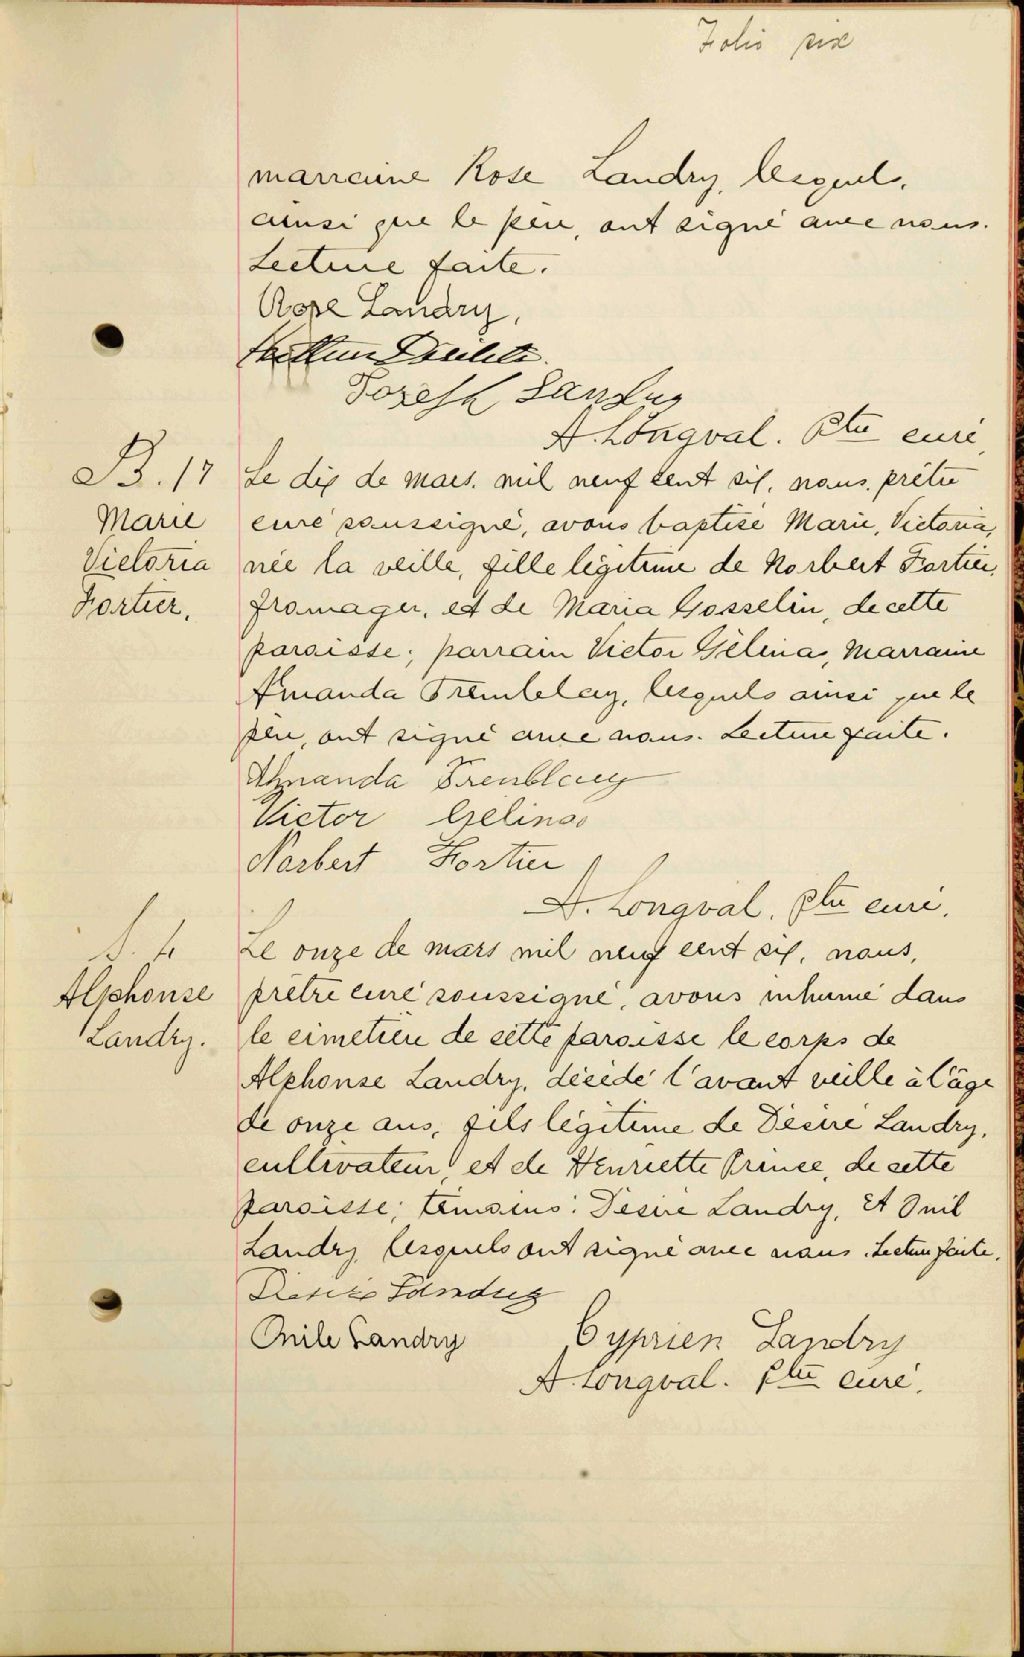 Folio six
marraine Rose Landry, lesquels,
ainsi que le père, ont signé avec nous.
Lecture faite.
Rose Landry,
Joseph Landry
A. Longval. Ptre curé,
B. 17
Marie
Victoria
Fortier.
Le dix de mars, mil neuf cent six, nous, prêtre
curé soussigné, avons baptisé Marie, Victoria,
née la veille, fille légitime de Norbert Fortier,
fromager, et de Maria Gosselin, de cette
paroisse; parrain Victor Gélinas, marraine
Amanda Tremblay, lesquels ainsi que le
père, ont signé avec nous. Lecture faite.
Amanda Tremblay
Victor Gélinas
Norbert Fortier
A. Longval. Ptre curé.
S. 4
Alphonse
Landry.
Le onze de mars mil neuf cent six, nous,
prêtre curé soussigné, avons inhumé dans
le cimetière de cette paroisse le corps de
Alphonse Landry, décédé l'avant veille à l'âge
de onze ans, fils légitime de Désiré Landry,
cultivateur, et de Henriette Prince, de cette
paroisse; témoins: Désiré Landry, Et Onil
Landry, lesquels ont signé avec nous. Lecture faite.
Désiré Landry
Onile Landry Cyprien Landry
A. Longval. Ptre curé.